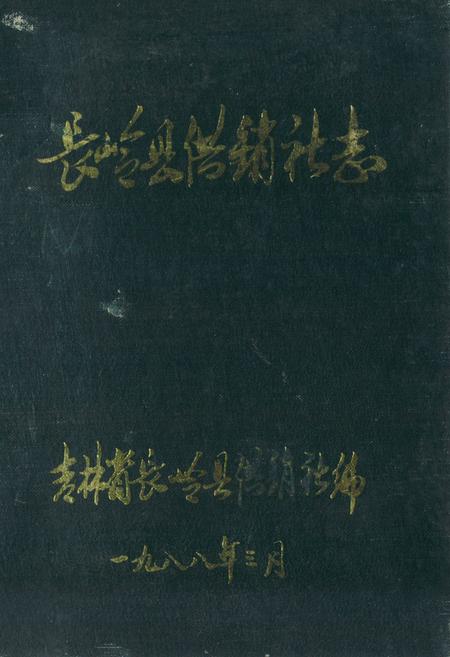 長岭县供销社志
吉林省長岭县供销社编
一九八八年三月